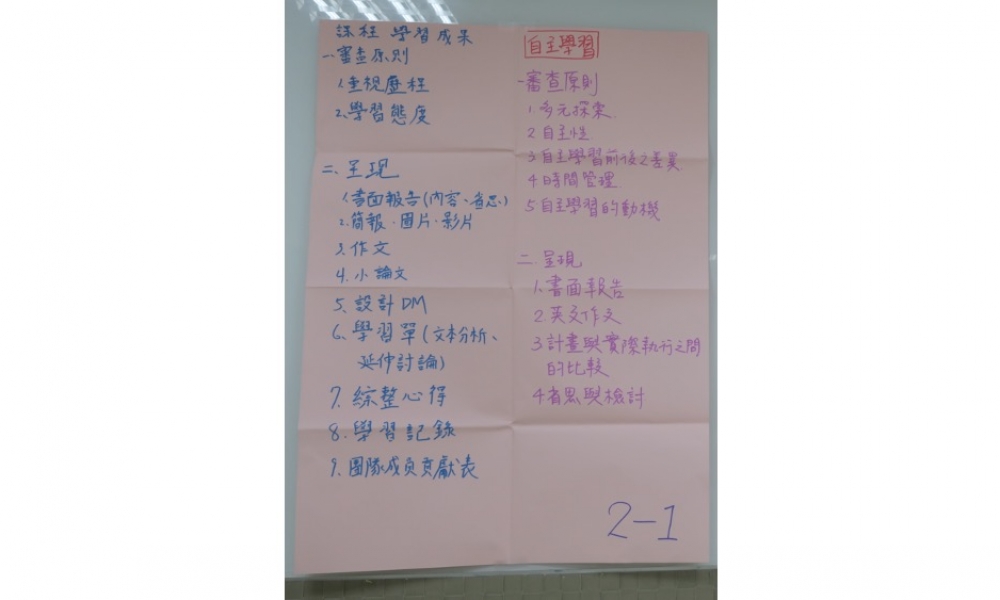 課程 學習成果
一、審查原則
1.重視歷程
2.學習態度
二、呈現
1.書面報告(內容、省思)
2.簡報·圖片·影片
3.作文
4.小論文
5.設計DM
6.學習單(文本分析、
延伸討論)
7.綜整心得
8.學習記錄
9.團隊成員貢獻表
自主學習
一審查原則
1.多元探索
2自主性
3自主學習前後之差異
4時間管理
5自主學習的動機
二.呈現
1.書面報告
2.英文作文
3計畫與實際執行之間
的比較
4省思與檢討
2-1